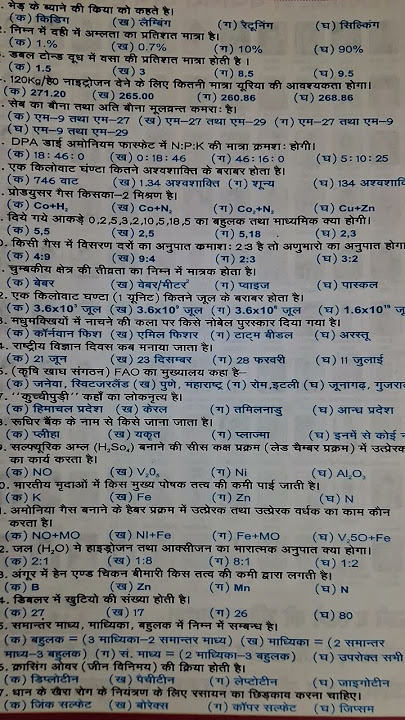 . भेड़ के ब्याने की किया को कहते है।
(क) किडिंग (ख) लैम्बिंग (ग) रेटूनिंग (घ) सिल्किंग
. निम्न में दही में अम्लता का प्रतिशत मात्रा है।
(क) 1.% (ख) 0.7% (ग) 10% (घ) 90%
. डबल टोन्ड दूध में वसा की प्रतिशत मात्रा होती है ।
(क) 1.5 (ख) 3 (ग) 8.5 (घ) 9.5
. 120Kg/हे0 नाइट्रोजन देने के लिए कितनी मात्रा यूरिया की आवश्यकता होगा।
(क) 271.20 (ख) 265.00 (ग) 260.86 (घ) 268.86
. सेब का बौना तथा अति बौना मूलव्रन्त कमराः है।
(क) एम–9 तथा एम–27 (ख) एम–27 तथा एम–29 (ग) एम–27 तथा एम–9
(घ) एम–9 तथा एम–29
. DPA डाई अमोनियम फास्फेट में N:P:K की मात्रा क्रमशः होगी।
(क) 18 : 46 : 0 (ख) 0 : 18 : 46 (ग) 46 : 16 : 0 (घ) 5 : 10 : 25
. एक किलोवाट घंण्टा कितने अश्वशाक्ति के बराबर होता है।
(क) 746 वाट (ख) 1.34 अश्वशाक्ति (ग) शून्य (घ) 134 अश्वशाक्ति
. प्रोडयुसर गैस किसका–2 मिश्रण है।
(क) Co+H₂ (ख) Co+N₂ (ग) Co₂+N₂ (घ) Cu+Zn
. दिये गये आकड़े 0,2,5,3,2,10,5,18,5 का बहुलक तथा माध्यमिक क्या होगी।
(क) 5,5 (ख) 2,5 (ग) 5,18 (घ) 2,3
0. किसी गैस में विसरण दरों का अनुपात कमाशः 2:3 है तो अणुमारो का अनुपात होगा
(क) 4:9 (ख) 9:4 (ग) 2:3 (घ) 3:2
. चुम्बकीय क्षेत्र की तीव्रता का निम्न में मात्रक होता है।
(क) बेबर (ख) वेबर/मीटर² (ग) प्वाइज (घ) पास्कल
2. एक किलोवाट घण्टा (1 यूनिट) कितने जूल के बराबर होता है।
(क) 3.6x10⁷ जूल (ख) 3.6x10⁹ जूल (ग) 3.6x10⁶ जूल (घ) 1.6x10¹⁹
3. मधुमक्खियों में नाचने की कला पर किसे नोबेल पुरस्कार दिया गया है।
(क) कॉर्नवान फिश (ख) एमिल फिशर (ग) टाट्म बीडल (घ) अरस्तू
4. राष्ट्रीय विज्ञान दिवस कब मनाया जाता है।
(क) 21 जून (ख) 23 दिसम्बर (ग) 28 फरवरी (घ) 11 जुलाई
5. (कृषि खाघ संगठन) FAO का मुख्यालय कहा है–
(क) जनेवा, स्विटजरलैंड (ख) पुणे, महाराष्ट्र (ग) रोम,इटली (घ) जूनागढ़,
7. "कुच्चीपुड़ी" कहाँ का लोकनृत्य है।
(क) हिमाचल प्रदेश (ख) केरल (ग) तमिलनाडु (घ) आन्ध प्रदेश
8. रूधिर बैंक के नाम से किसे जाना जाता है।
(क) प्लीहा (ख) यकृत (ग) प्लाज्मा (घ) इनमें से कोई
9. सल्फ्यूरिक अम्ल (H₂So₄) बनाने की सीस कक्ष प्रक्रम (लेड चैम्बर प्रक्रम) में उत्प्रेरक
का कार्य करता है।
(क) NO (ख) V₂0₅ (ग) Ni (घ) Al₂O₃
0. भारतीय मृदाओं में किस मुख्य पोषक तत्व की कमी पाई जाती है।
(क) K (ख) Fe (ग) Zn (घ) N
. अमोनिया गैस बनाने के हैबर प्रक्रम में उत्प्रेरक तथा उत्प्रेरक वर्धक का काम कौन
करता है।
(क) NO+MO (ख) NI+Fe (ग) Fe+MO (घ) V₂5O+Fe
2. जल (H₂O) मे हाइड्रोजन तथा आक्सीजन का भारात्मक अनुपात क्या होगा।
(क) 2:1 (ख) 1:8 (ग) 8:1 (घ) 1:2
3. अंगूर में हेन एण्ड चिकन बीमारी किस तत्व की कमी द्वारा लगती है।
(क) B (ख) Zn (ग) Mn (घ) N
4. डिबलर में खुटियो की संख्या होती है।
(क) 27 (ख) 17 (ग) 26 (घ) 80
5. समान्तर माध्य, माध्यिका, बहुलक में निम्न में सम्बन्ध है।
(क) बहुलक = (3 माध्यिका–2 समान्तर माध्य) (ख) माध्यिका = (2 समान्तर
माध्य–3 बहुलक) (ग) सं. माध्य = (2 माध्यिका–3 बहुलक) (घ) उपरोक्त सभी
6. क्रासिंग ओवर (जीन विनिमय) की क्रिया होती है।
(क) डिप्लोटीन (ख) पैचीटीन (ग) लेप्टोटीन (घ) जाइगोटीन
7. धान के खैरा रोग के नियंत्रण के लिए रसायन का छिड़काव करना चाहिए।
(क) जिंक सल्फेट (ख) बोरेक्स (ग) कॉपर सल्फेट (घ) जिप्सम